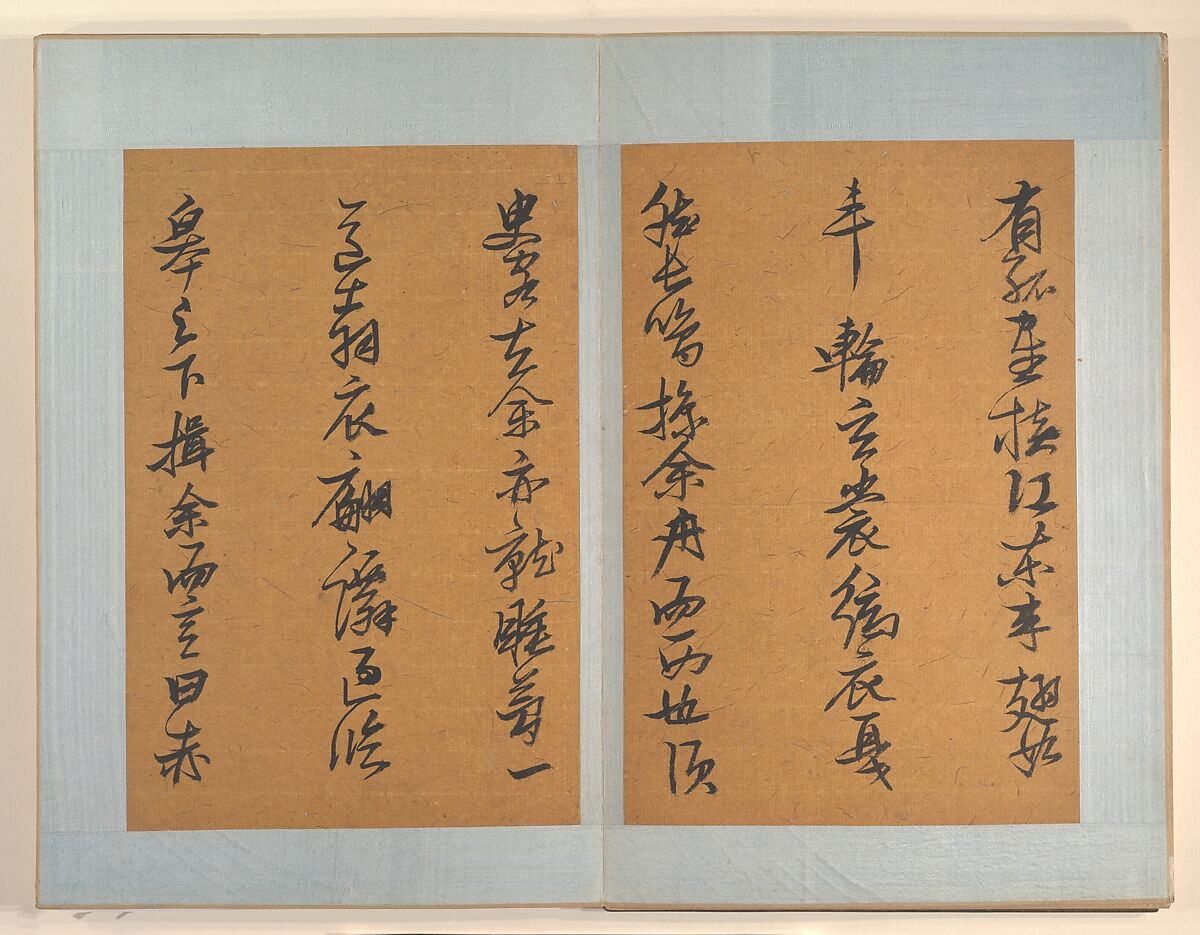 有孤崔橫江東來翅如
車輪玄裳縞衣戛
然長鳴掠余舟而西也須
臾客去余亦就睡夢一
道士羽衣翩僊過臨
皋之下揖余而言曰赤